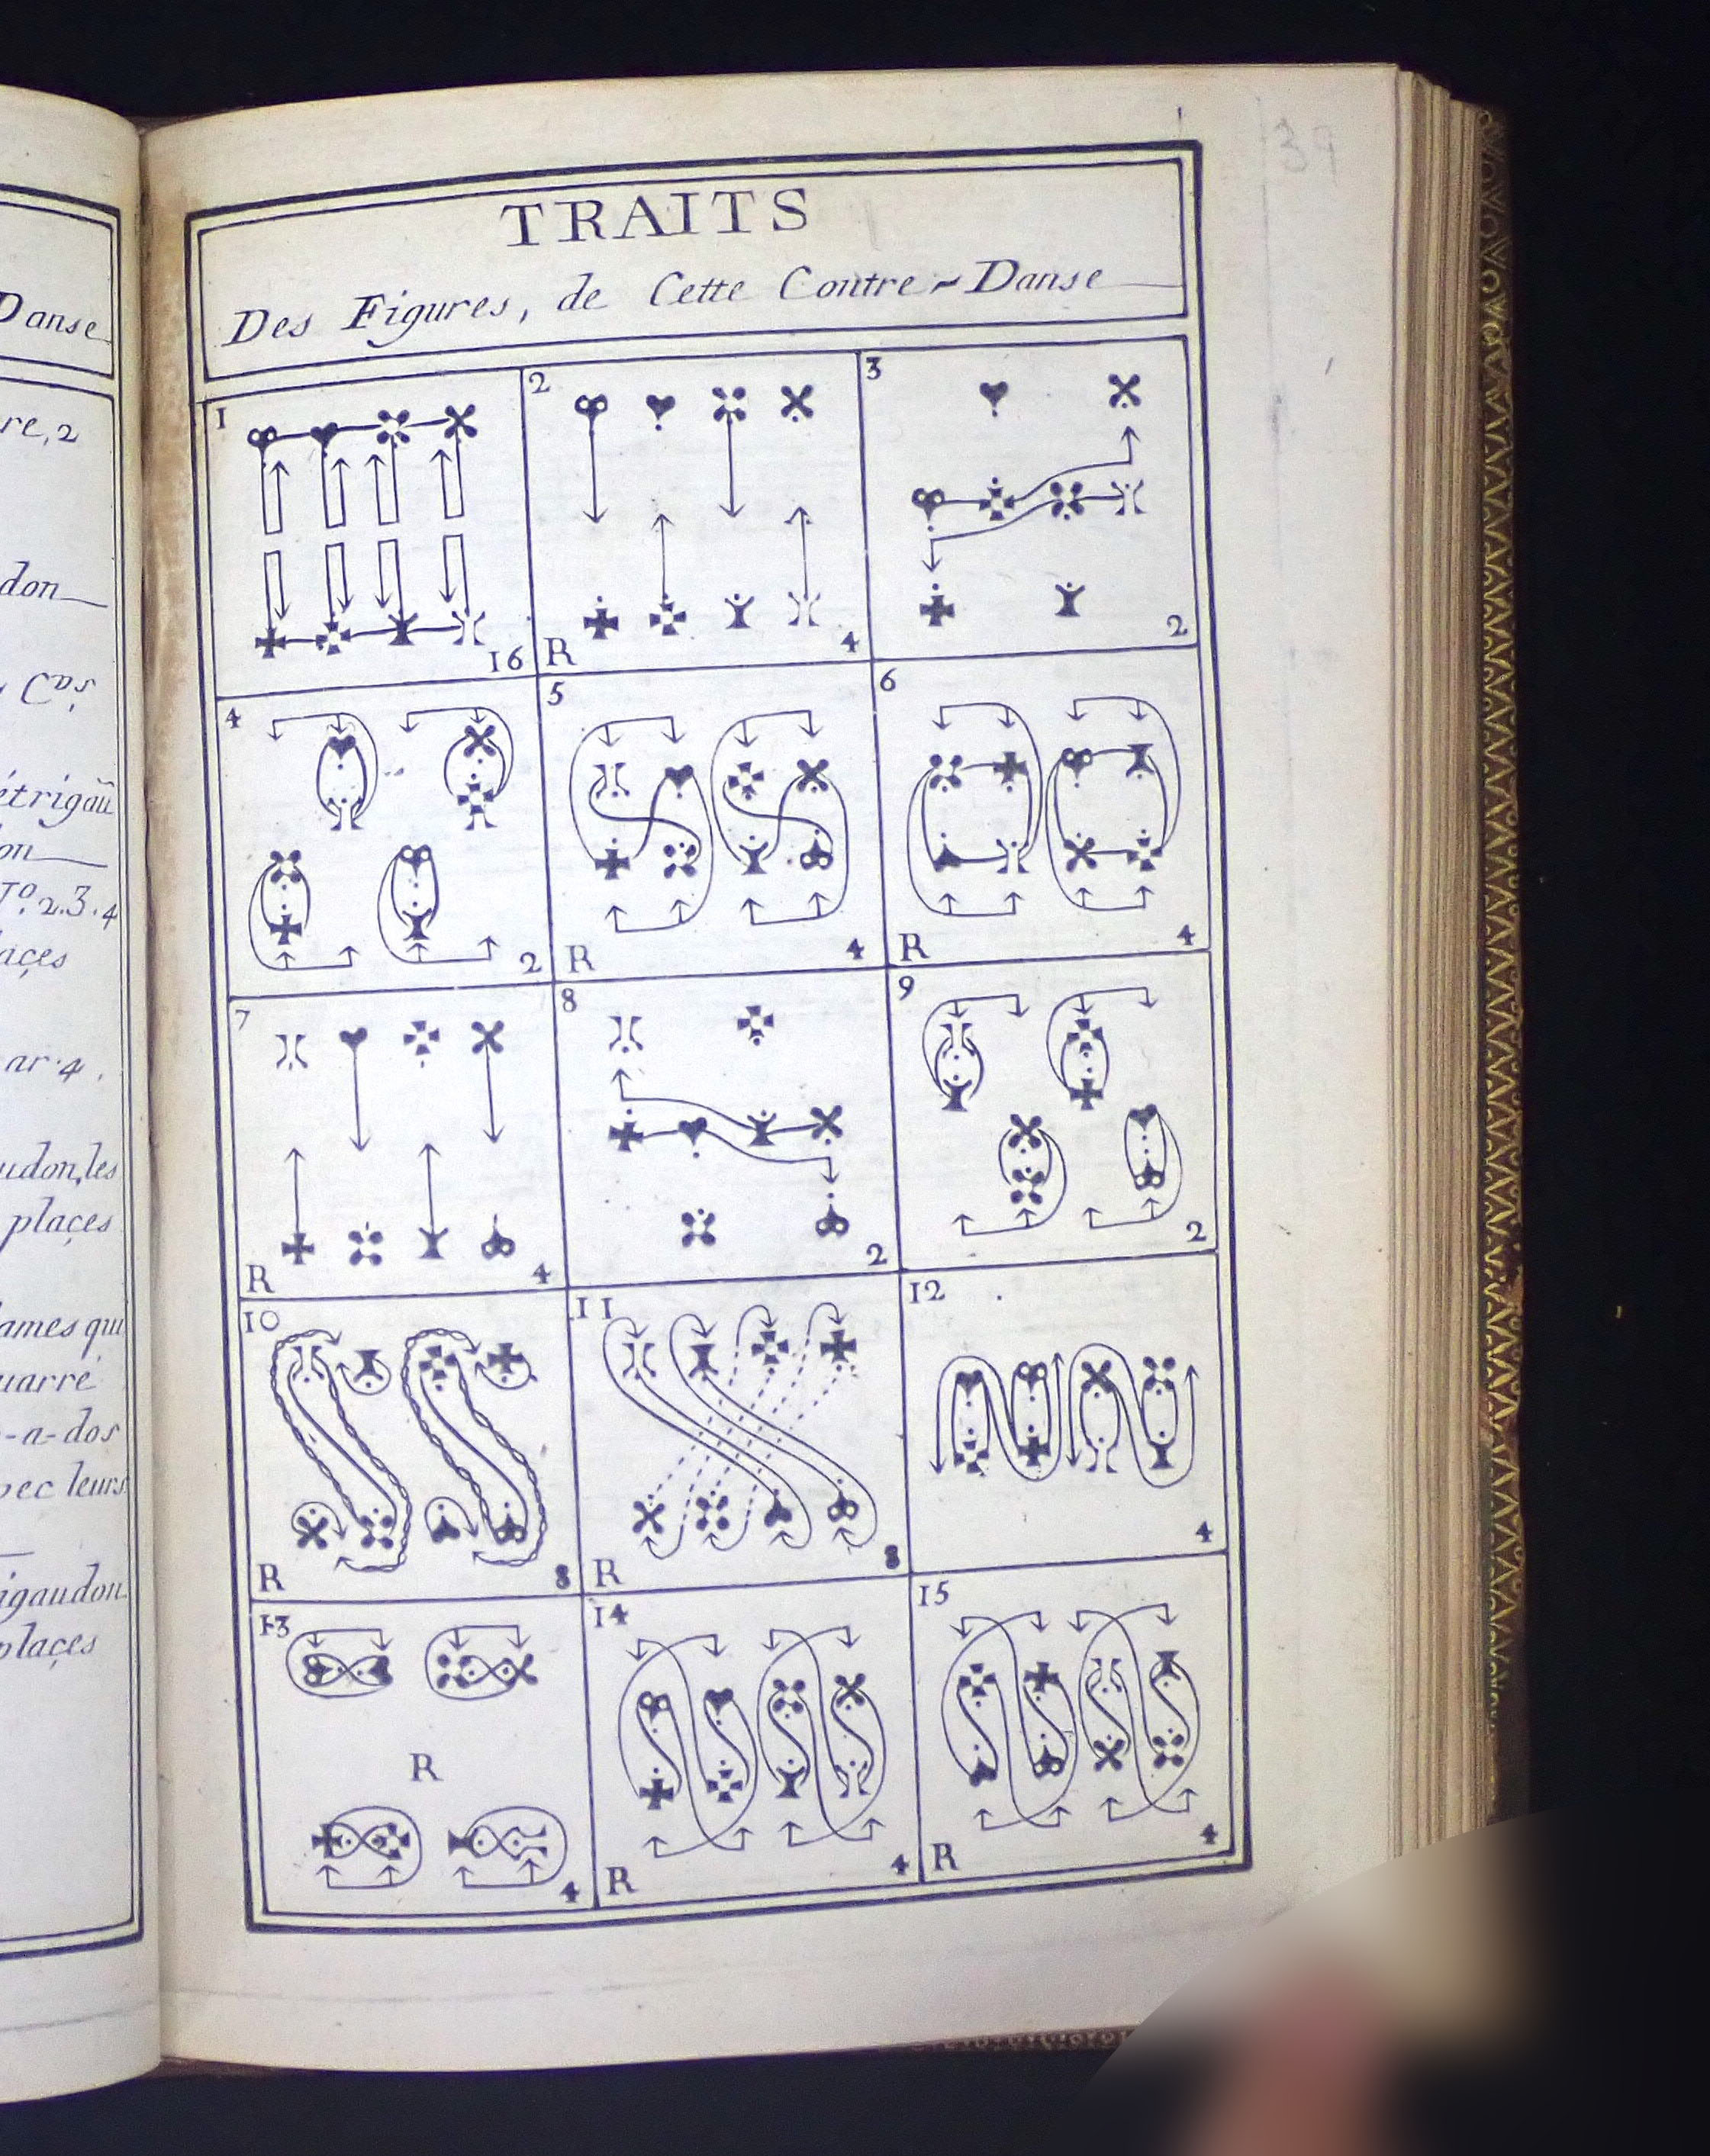 Danse
re, 2
don
Cds
étrigau
on
To. 2.3.4
laçes
ar. 4.
udon, les
plaçes
ames qui
uarré
-a-dos
vec leurs
igaudon
plaçes
TRAITS
Des Figures, de Cette Contre-Danse
1
16
2
R
4
3
2
4
2
5
R
4
6
R
4
7
R
4
8
2
9
2
10
R
8
11
R
8
12
4
13
R
4
14
R
4
15
R
4